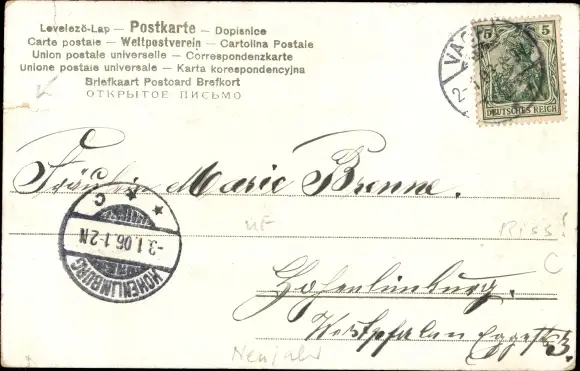 Levelező-Lap — Postkarte — Dopisnice
Carte postale — Weltpostverein — Cartolina Postale
Union postale universelle — Correspondenzkarte
Unione postale universale — Karta korespondencyjna
Briefkaart Postcard Brefkort
ОТКРЫТОЕ ПИСЬМО
5 5
DEUTSCHES REICH
Fräulein Marie Brenne.
C
-3.1.06.1-2N
HOHENLIMBURG
Riss!
C
Hohenlimburg.
Westfalen
Neujahr